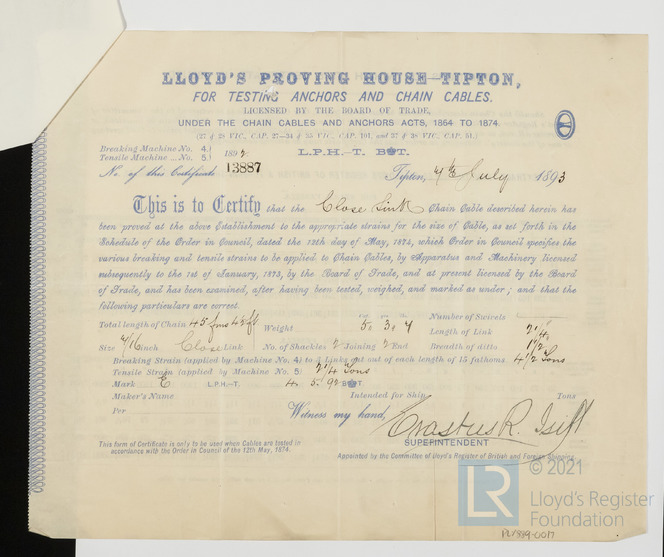 LLOYD'S PROVING HOUSE—TIPTON,
FOR TESTING ANCHORS AND CHAIN CABLES.
LICENSED BY THE BOARD OF TRADE,
UNDER THE CHAIN CABLES AND ANCHORS ACTS, 1864 TO 1874.
(27 & 28 VIC., CAP. 27—34 & 35 VIC., CAP. 101, and 37 & 38 VIC., CAP. 51.)
Breaking Machine No. 4.
Tensile Machine ... No. 5. 1892 L.P.H.—T. B T.
No. of this Certificate 13887 Tipton, 7th July 1893
This is to Certify that the Close Link Chain Cable described herein has
been proved at the above Establishment to the appropriate strains for the size of Cable, as set forth in the
Schedule of the Order in Council, dated the 12th day of May, 1874, which Order in Council specifies the
various breaking and tensile strains to be applied to Chain Cables, by Apparatus and Machinery licensed
subsequently to the 1st of January, 1873, by the Board of Trade, and at present licensed by the Board
of Trade, and has been examined, after having been tested, weighed, and marked as under; and that the
following particulars are correct.
Number of Swivels
Total length of Chain 45 fms Weight 5 3 7 Length of Link 2 1/4
Size 7/16 inch Close Link No. of Shackles 2 Joining 2 End Breadth of ditto 1 1/2
Breaking Strain (applied by Machine No. 4) to 3 Links cut out of each length of 15 fathoms 4 1/2 Tons
Tensile Strain (applied by Machine No. 5) 2 1/4 Tons
Mark E L.P.H.—T. 4. 5. 92 B T
Maker's Name Intended for Ship Tons
Per Witness my hand,
Erastus R.
SUPERINTENDENT
This form of Certificate is only to be used when Cables are tested in
accordance with the Order in Council of the 12th May, 1874.
Appointed by the Committee of Lloyd's Register of British and Foreign Shipping.
© 2021
LR
Lloyd's Register
Foundation
PLY889-0017